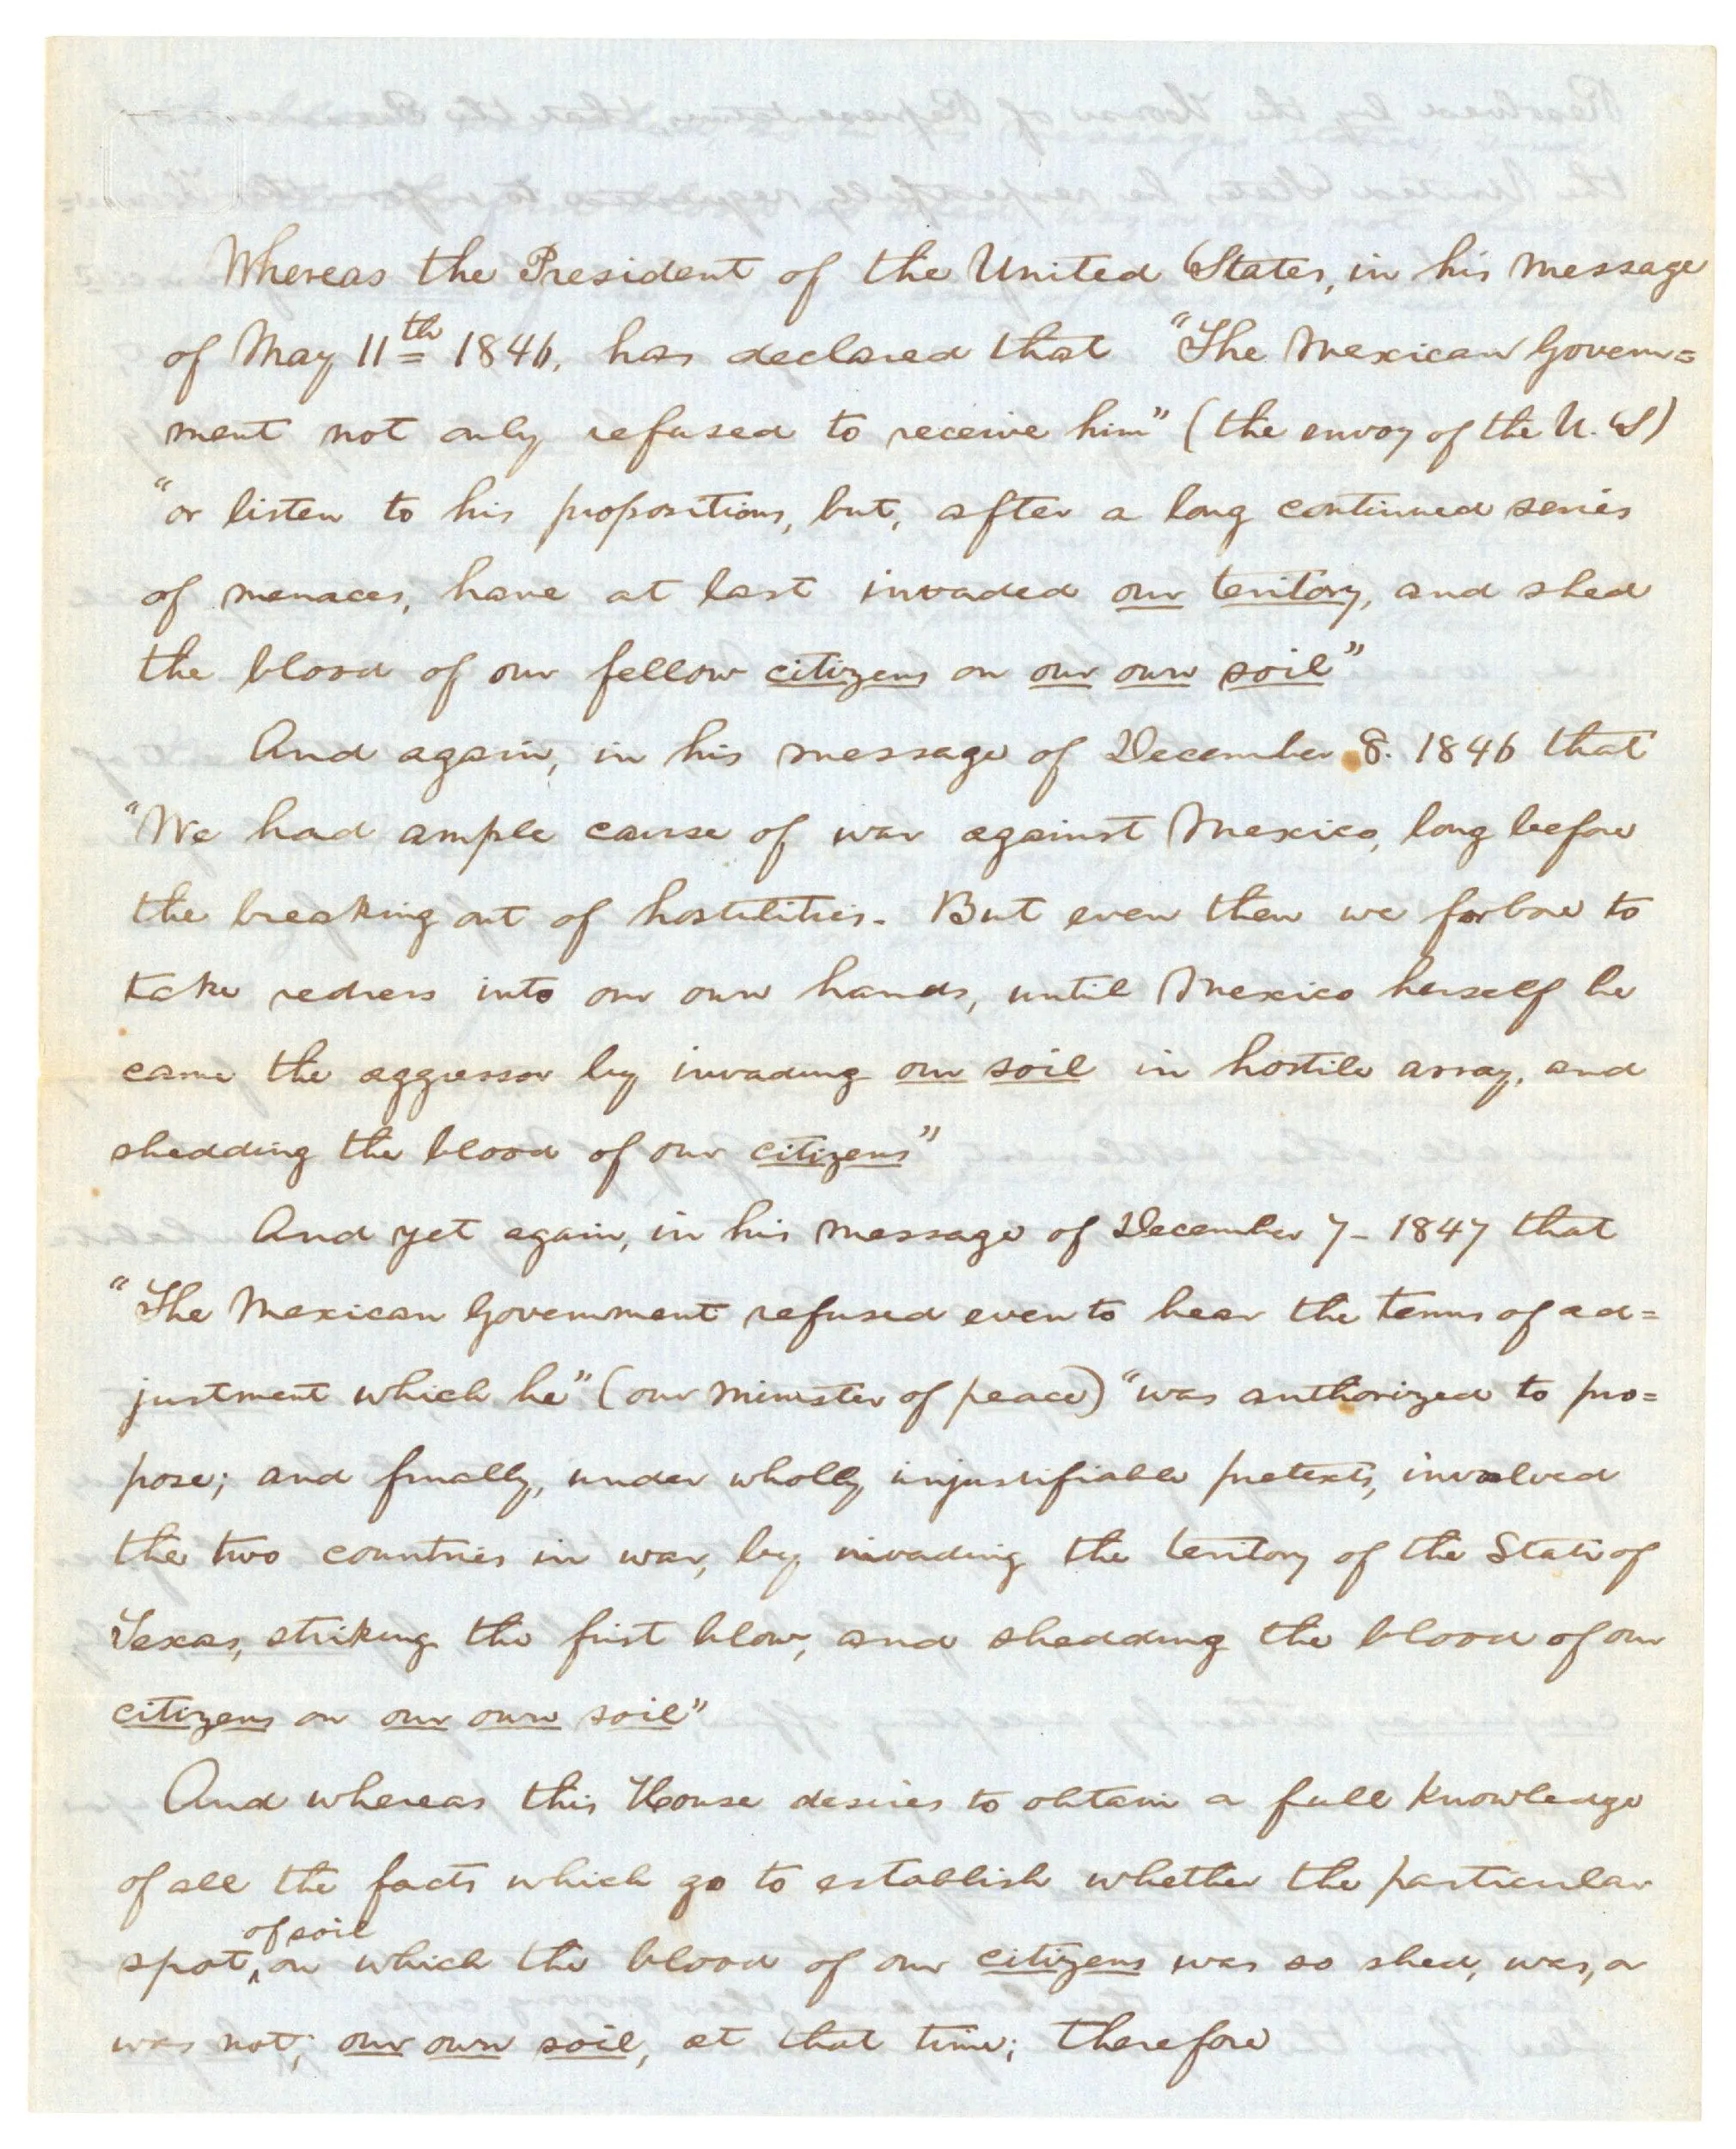 Whereas the President of the United States, in his message
of May 11th 1846, has declared that "The Mexican Govern=
ment not only refused to receive him" (the envoy of the U.S)
"or listen to his propositions, but, after a long continued series
of menaces, have at last invaded our teritory, and shed
the blood of our fellow citizens on our own soil"
And again, in his message of December 8. 1846 that
"We had ample cause of war against Mexico, long before
the breaking out of hostilities. But even then we forbore to
take redress into our own hands, until Mexico herself be
came the aggressor by invading our soil in hostile array, and
shedding the blood of our citizens"
And yet again, in his message of December 7- 1847 that
"The Mexican Government refused even to hear the terms of ad=
justment which he" (our minister of peace) "was authorized to pro=
pose; and finally, under wholly unjustifiable pretexts, involved
the two countries in war, by invading the teritory of the State of
Texas, striking the first blow, and shedding the blood of our
citizens on our own soil"
And whereas this House desires to obtain a full knowledge
of all the facts which go to establish whether the particular
spot of soil on which the blood of our citizens was so shed, was, or
was not, our own soil, at that time; therefore